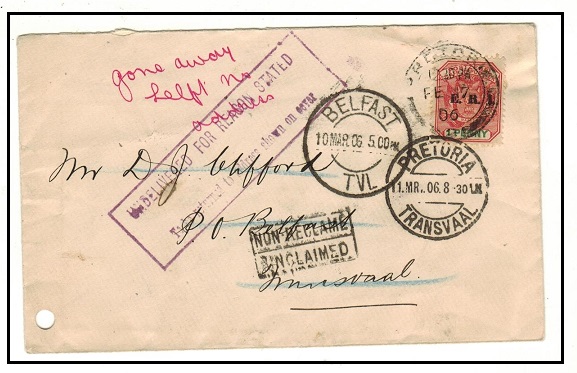 gone away
left no
address
UNDELIVERED FOR REASON STATED
To be returned to address shown on cover
PRETORIA
FE 7
06
E.R.I.
1 PENNY
BELFAST
10 MAR. 06. 5.00 PM
TVL
PRETORIA
11.MR..06.8-30
TRANSVAAL
Mr D. J. Clifford
P.O. Belfast
NON-RECLAME
UNCLAIMED
Transvaal